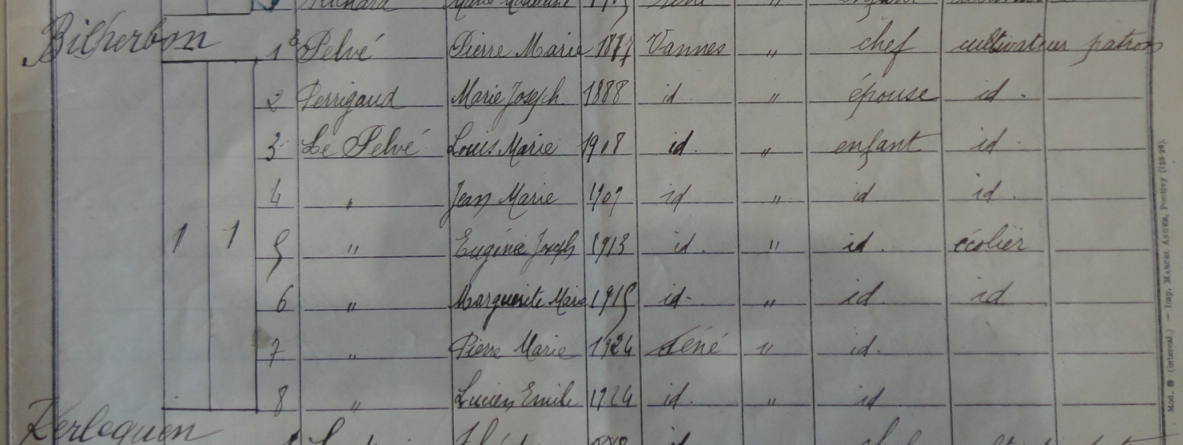 Bilherbon
1 Le Pelvé Pierre Marie 1877 Vannes " chef cultivateur patron
2 Perrigaud Marie Joseph 1888 id. " épouse id.
3 Le Pelvé Louis Marie 1908 id. " enfant id.
4 " Jean Marie 1909 id " id id.
1 1 5 " Eugénie Joseph 1913 id. " id. écolier
6 " Marguerite Marie 1915 id. " id. id
7 " Pierre Marie 1924 Séné " id.
8 " Lucien Emile 1924 id. " id
Kerloguen